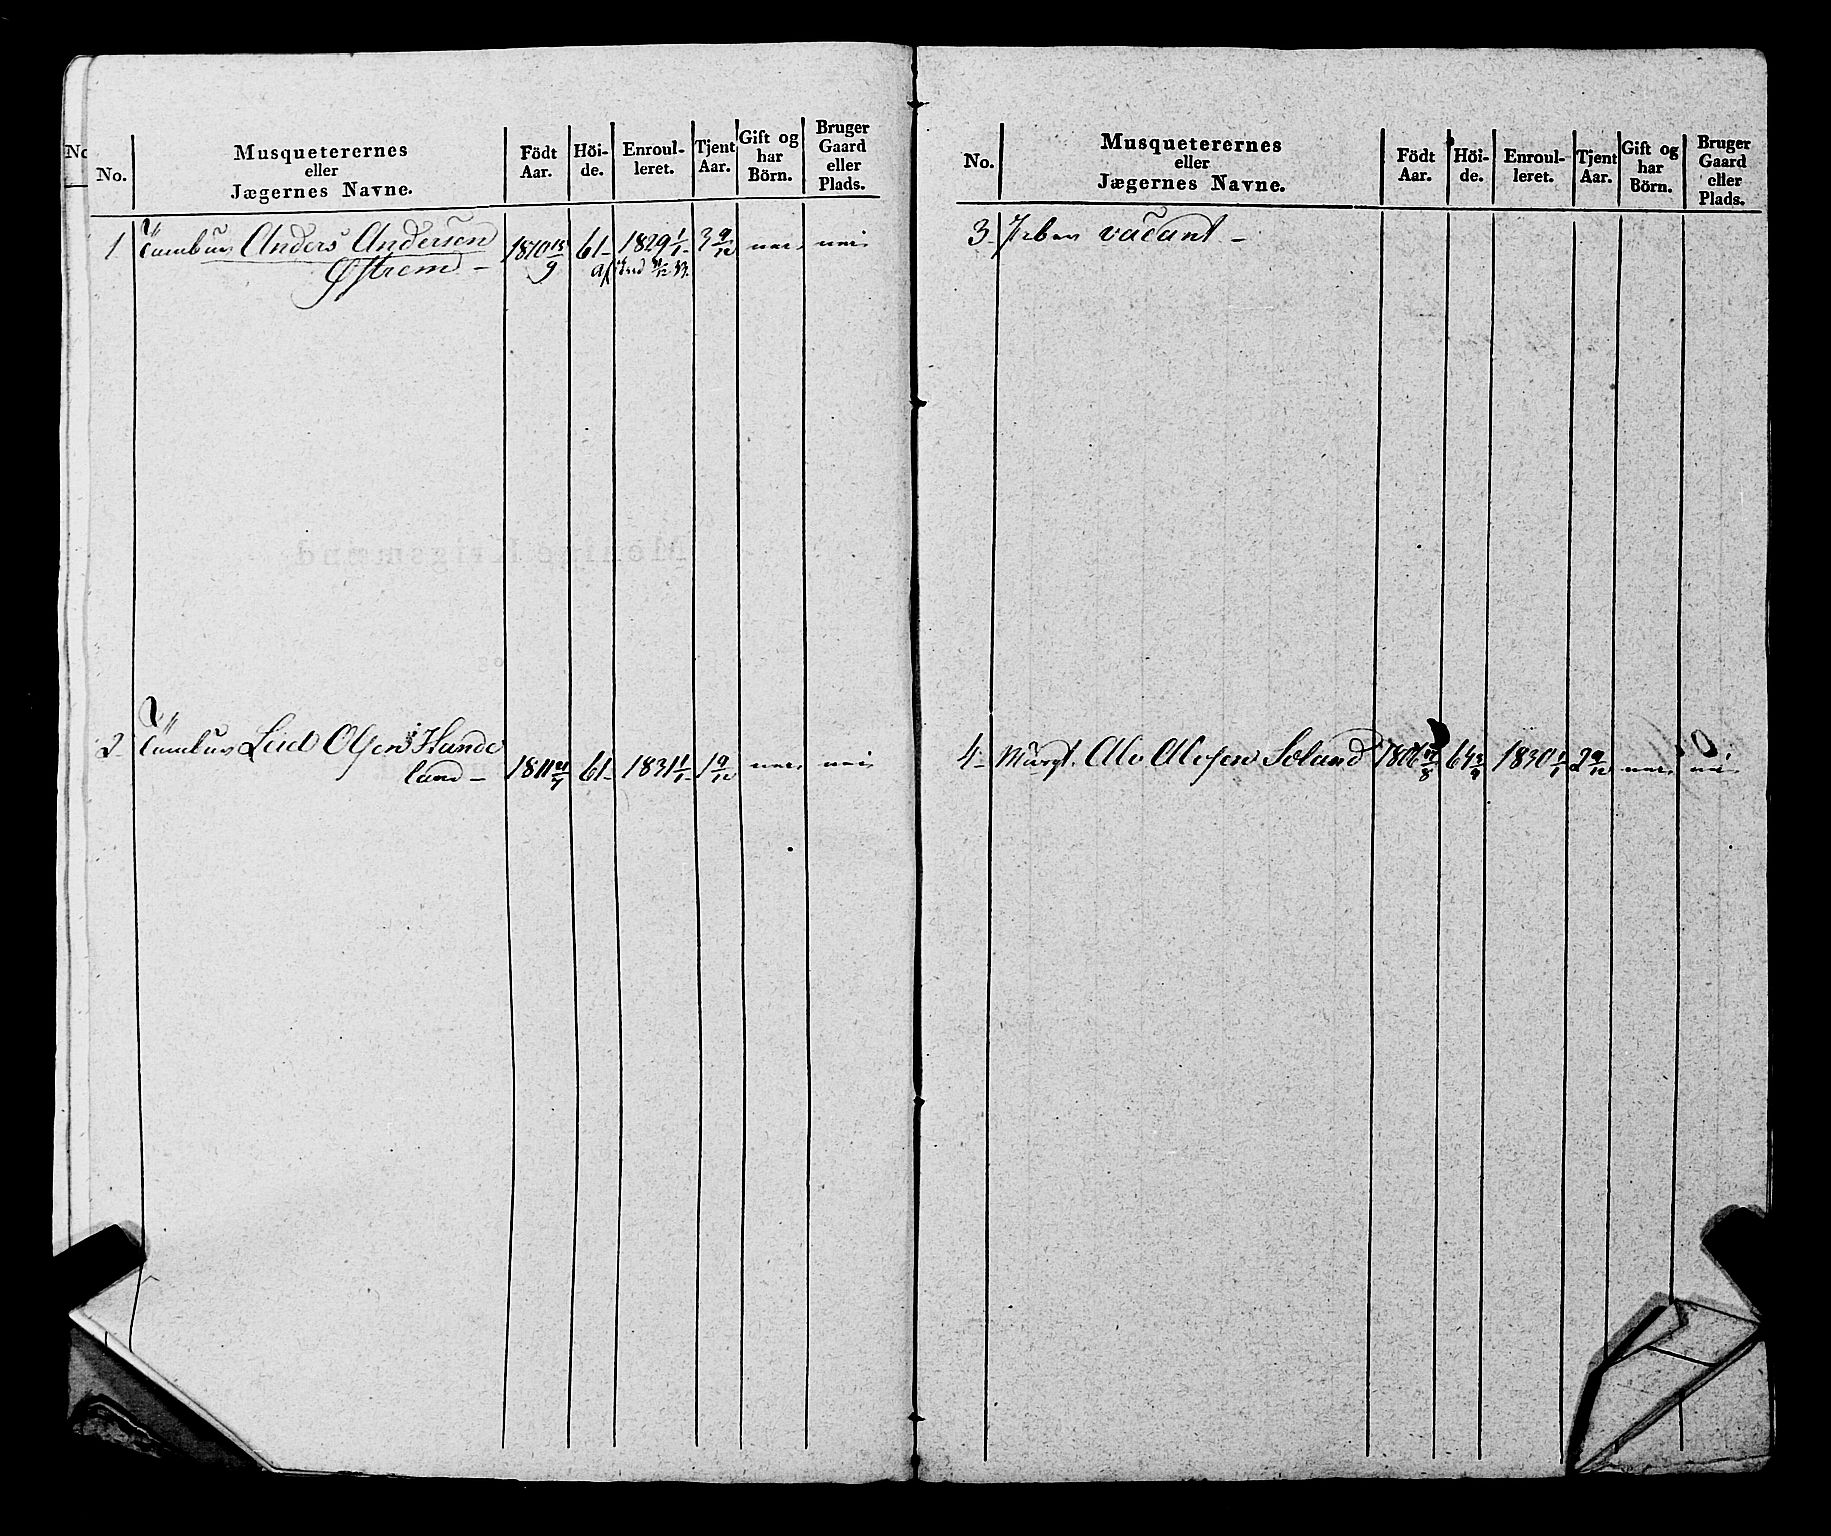 No.
No.
Musqueterernes
eller
Jægernes Navne.
Födt
Aar.
Höi-
de.
Enroul-
leret.
Tjent
Aar.
Gift og
har
Börn.
Bruger
Gaard
eller
Plads.
1 Tambur Anders Andersen 1810 61 1829 1/1 3 9/12 nei nei
Østrem
2 Tambur Olsen Hunde
land 1811 61 1831 1/1 1 9/12 nei nei
No.
Musqueterernes
eller
Jægernes Navne.
Födt
Aar.
Höi-
de.
Enroul-
leret.
Tjent
Aar.
Gift og
har
Börn.
Bruger
Gaard
eller
Plads.
3 Piber vacant
4 Musqt. Ole Olesen Soland 1806 64 3/4 1830 1/1 2 9/12 nei nei